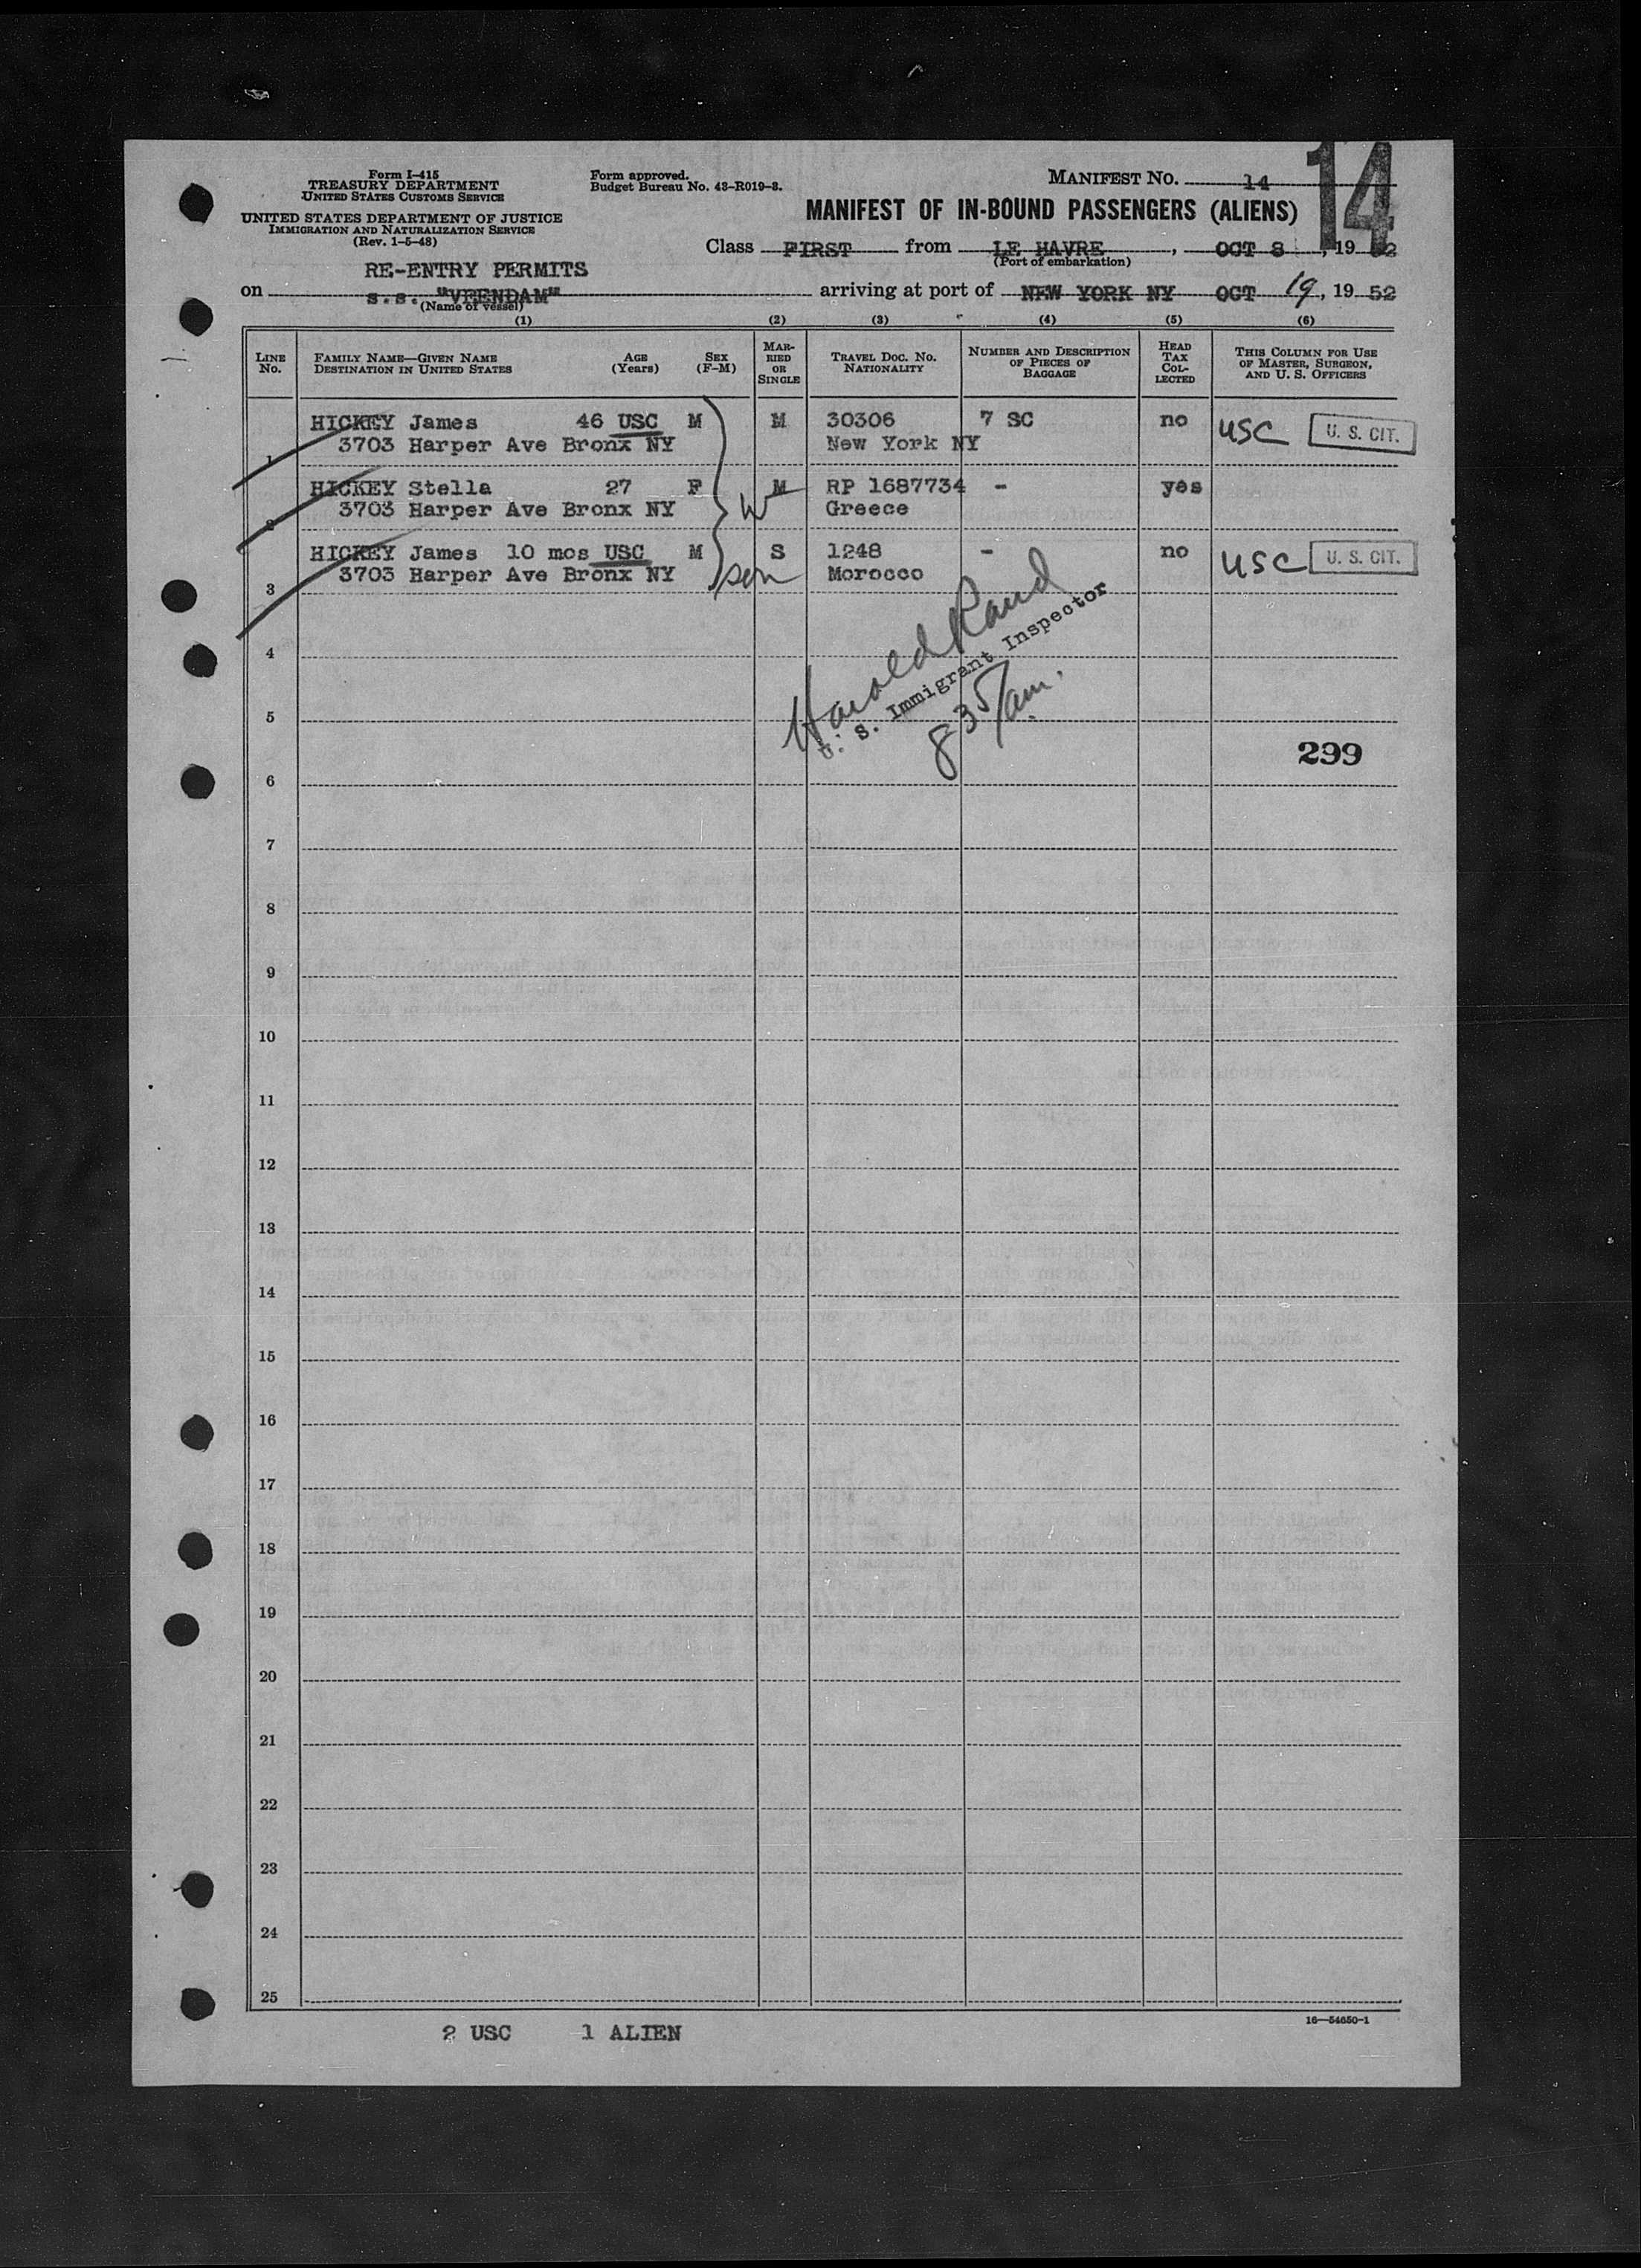 14
Form I-415
TREASURY DEPARTMENT
UNITED STATES CUSTOMS SERVICE
UNITED STATES DEPARTMENT OF JUSTICE
IMMIGRATION AND NATURALIZATION SERVICE
(Rev. 1-5-48)
Form approved.
Budget Bureau No. 43-R019-3.
MANIFEST NO. 14
MANIFEST OF IN-BOUND PASSENGERS (ALIENS)
Class FIRST from LE HAVRE, OCT 8, 19 52
(Port of embarkation)
RE-ENTRY PERMITS
on s.s. "VEENDAM" arriving at port of NEW YORK NY OCT 19, 19 52
(Name of vessel)
(1) (2) (3) (4) (5) (6)
LINE No. FAMILY NAME—GIVEN NAME DESTINATION IN UNITED STATES AGE (Years) SEX (F-M) MARRIED OR SINGLE TRAVEL DOC. NO. NATIONALITY NUMBER AND DESCRIPTION OF PIECES OF BAGGAGE HEAD TAX COLLECTED THIS COLUMN FOR USE OF MASTER, SURGEON, AND U. S. OFFICERS
HICKEY James 46 USC M M 30306 7 SC no USC U. S. CIT.
1 3703 Harper Ave Bronx NY New York NY
HICKEY Stella 27 F M RP 1687734 - yes
2 3703 Harper Ave Bronx NY W Greece
HICKEY James 10 mos USC M S 1248 - no USC U. S. CIT.
3 3703 Harper Ave Bronx NY son Morocco
Harold Rand
U. S. Immigrant Inspector
835/am.
4
5
299
6
7
8
9
10
11
12
13
14
15
16
17
18
19
20
21
22
23
24
25
2 USC 1 ALIEN
16—54650-1